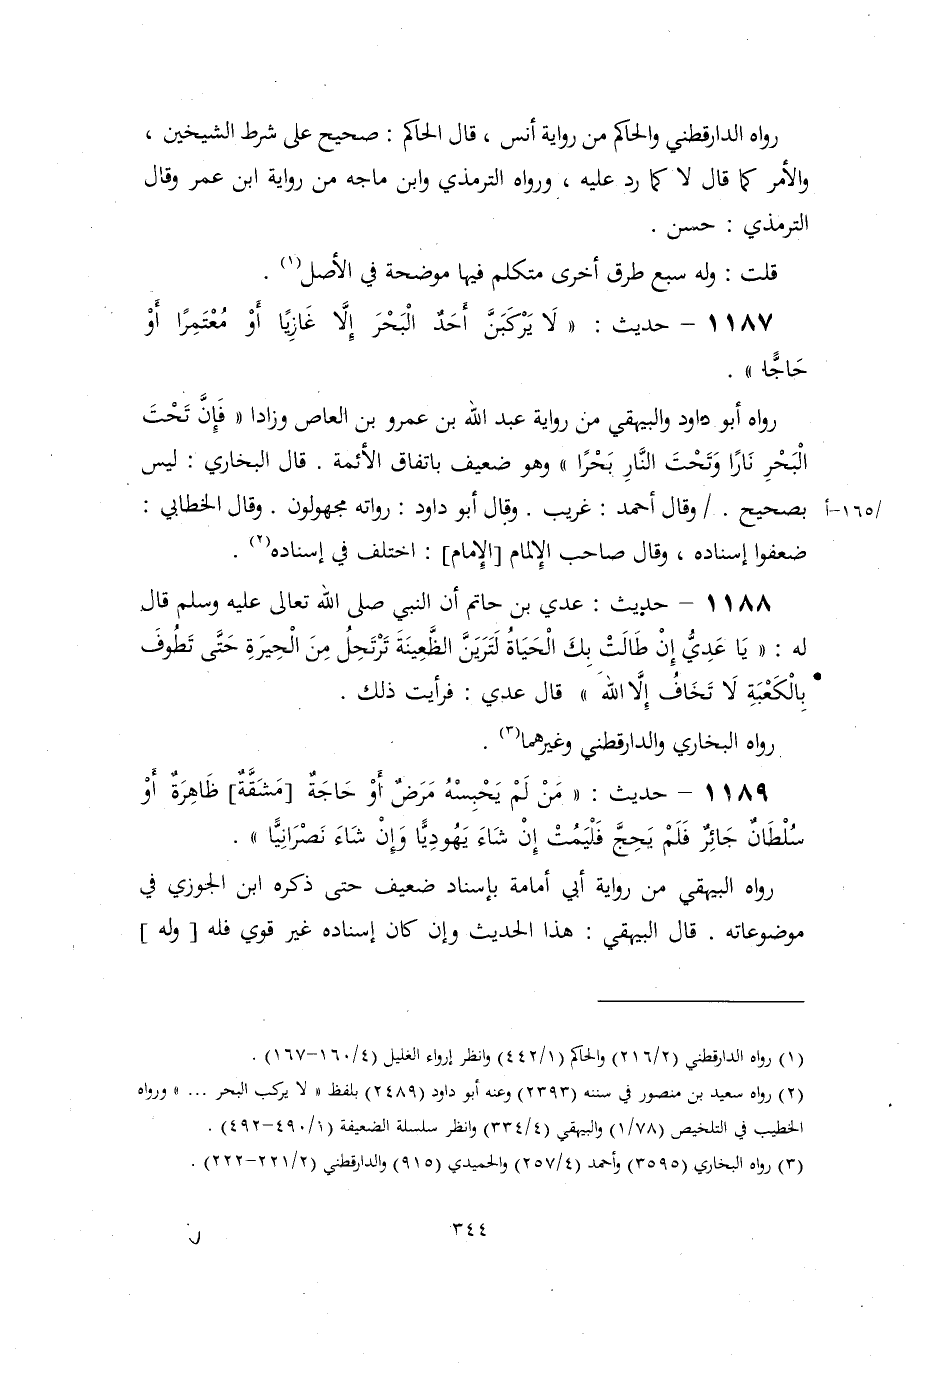 رواه الدارقطني والحاكم من رواية أنس ، قال الحاكم : صحيح على شرط الشيخين ،
والأمر كما قال لا كما رد عليه ، ورواه الترمذي وابن ماجه من رواية ابن عمر وقال
الترمذي : حسن .
قلت : وله سبع طرق أخرى متكلم فيها موضحة في الأصل(١) .
١١٨٧ – حديث : « لَا يَرْكَبَنَّ أَحَدٌ الْبَحْرَ إِلَّا غَازِيًا أَوْ مُعْتَمِرًا أَوْ
حَاجًّا » .
رواه أبو داود والبيهقي من رواية عبد الله بن عمرو بن العاص وزادا « فَإِنَّ تَحْتَ
الْبَحْرِ نَارًا وَتَحْتَ النَّارِ بَحْرًا » وهو ضعيف باتفاق الأئمة . قال البخاري : ليس
بصحيح . / وقال أحمد : غريب . وقال أبو داود : رواته مجهولون . وقال الخطابي :
/١٦٥–أ
ضعفوا إسناده ، وقال صاحب الإلمام [الإمام] : اختلف في إسناده(٢) .
١١٨٨ – حديث : عدي بن حاتم أن النبي صلى الله تعالى عليه وسلم قال
له : « يَا عَدِيُّ إِنْ طَالَتْ بِكَ الْحَيَاةُ لَتَرَيَنَّ الظَّعِينَةَ تَرْتَحِلُ مِنَ الْحِيرَةِ حَتَّى تَطُوفَ
بِالْكَعْبَةِ لَا تَخَافُ إِلَّا اللهَ » قال عدي : فرأيت ذلك .
رواه البخاري والدارقطني وغيرهما(٣) .
١١٨٩ – حديث : « مَنْ لَمْ يَحْبِسْهُ مَرَضٌ أَوْ حَاجَةٌ [مَشَقَّةٌ] ظَاهِرَةٌ أَوْ
سُلْطَانٌ جَائِرٌ فَلَمْ يَحِجَّ فَلْيَمُتْ إِنْ شَاءَ يَهُودِيًّا وَإِنْ شَاءَ نَصْرَانِيًّا » .
رواه البيهقي من رواية أبي أمامة بإسناد ضعيف حتى ذكره ابن الجوزي في
موضوعاته . قال البيهقي : هذا الحديث وإن كان إسناده غير قوي فله [ وله ]
(١) رواه الدارقطني (٢١٦/٢) والحاكم (٤٤٢/١) وانظر إرواء الغليل (١٦٠/٤–١٦٧) .
(٢) رواه سعيد بن منصور في سننه (٢٣٩٣) وعنه أبو داود (٢٤٨٩) بلفظ « لا يركب البحر ... » ورواه
الخطيب في التلخيص (١/٧٨) والبيهقي (٣٣٤/٤) وانظر سلسلة الضعيفة (٤٩٠/١–٤٩٢) .
(٣) رواه البخاري (٣٥٩٥) وأحمد (٢٥٧/٤) والحميدي (٩١٥) والدارقطني (٢٢١/٢–٢٢٢) .
٣٤٤